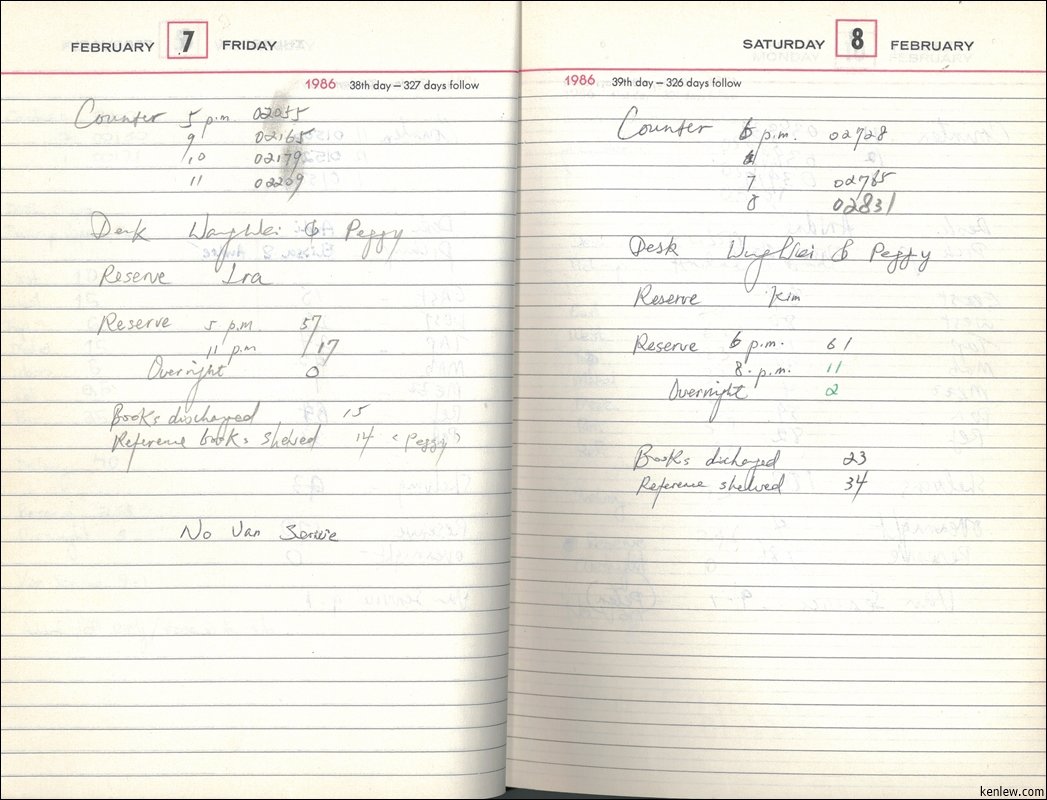 FEBRUARY 7 FRIDAY
1986 38th day – 327 days follow
Counter 5 p.m. 02055
9 02165
10 02179
11 02209
Desk WangWei & Peggy
Reserve Ira
Reserve 5 p.m. 57
11 p.m 17
Overnight 0
Books discharged 15
Reference books shelved 14 (Peggy)
No Van Service
SATURDAY 8 FEBRUARY
1986 39th day – 326 days follow
Counter 6 p.m. 02728
7 02785
8 02831
Desk WangWei & Peggy
Reserve Kim
Reserve 6 p.m. 61
8. p.m. 11
Overnight 2
Books discharged 23
Reference shelved 34
kenlew.com